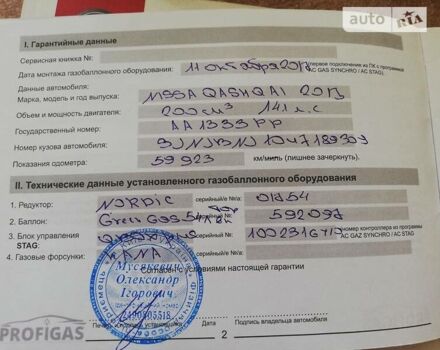 auto RIA
I. Гарантийные данные
Сервисная книжка №:
Дата монтажа газобаллонного оборудования: 11 октября 2017 (первое подключения из ПК с программой AC GAS SYNCHRO / AC STAG)
Данные автомобиля:
Марка, модель и год выпуска: NISSAN QASHQAI 2013
Объем и мощность двигателя: 2.00 см³ 141 л.с
Государственный номер: AA1333PP
Номер кузова автомобиля:
Показания одометра: 59 923 км/миль (лишнее зачеркнуть).
II. Технические данные установленного газобаллонного оборудования
1. Редуктор: NORDIC серийный/е №/а:
2. Баллон: Green Gas серийный/е №/а:
3. Блок управления STAG: номер контроллера из программы AC GAZ SYNCHRO / AC STAG
4. Газовые форсунки: HANA
Согласен с условиями настоящей гарантии
Мусякевич
Олександр
Ігорович
2490805518
Печать и подпись установщика Дата Подпись владельца автомобиля
2
PROFIGAS